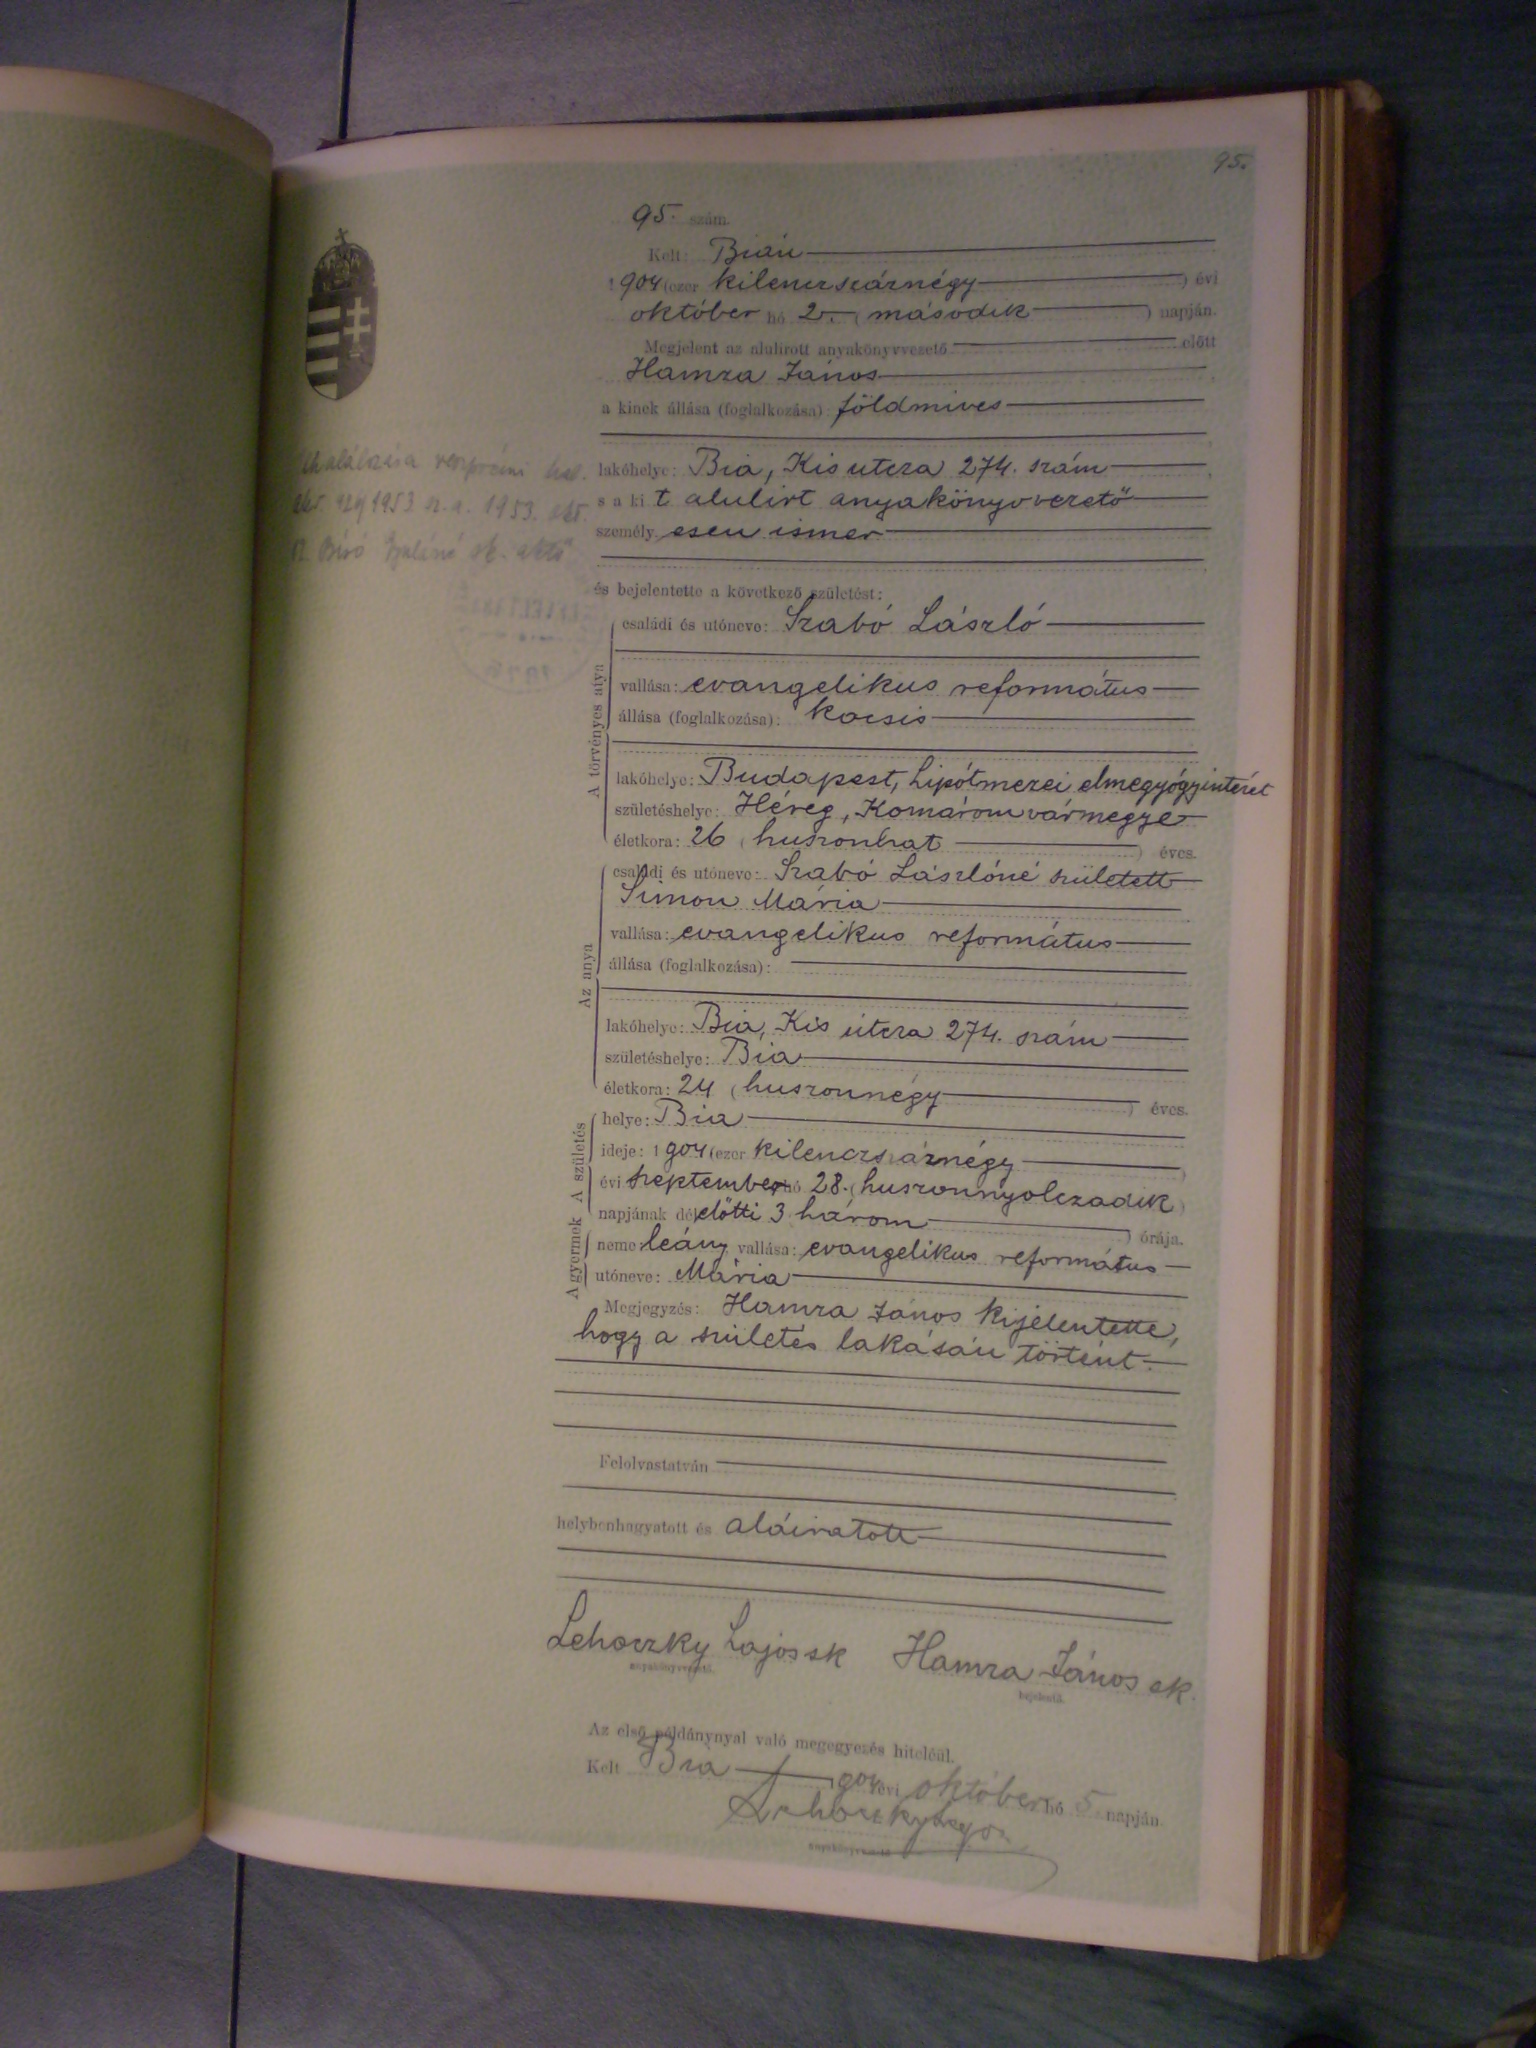 95.
95. szám.
Kelt: Bián
1904 (ezer kilenczszáznégy) évi
október hó 2. (második) napján.
Megjelent az alulirott anyakönyvvezető előtt
Hamza János
a kinek állása (foglalkozása): földmives
lakóhelye: Bia, Kis utcza 274. szám
s a kit alulirt anyakönyvvezető
személyesen ismer
és bejelentette a következő születést:
A törvényes atya
családi és utóneve: Szabó László
vallása: evangelikus református
állása (foglalkozása): kocsis
lakóhelye: Budapest, Lipótmezei elmegyógyintézet
születéshelye: Héreg, Komárom vármegye
életkora: 26 (huszonhat) éves.
Az anya
családi és utóneve: Szabó Lászlóné született
Simon Mária
vallása: evangelikus református
állása (foglalkozása):
lakóhelye: Bia, Kis utcza 274. szám
születéshelye: Bia
életkora: 24 (huszonnégy) éves.
A születés
helye: Bia
ideje: 1904 (ezer kilenczszáznégy)
évi szeptember hó 28. (huszonnyolczadik)
napjának délelőtti 3 három) órája.
A gyermek
neme: leány vallása: evangelikus református
utóneve: Mária
Megjegyzés: Hamza János kijelentette,
hogy a születés lakásán történt.
Felolvastatván
helybenhagyatott és aláiratott
Lehoczky Lajos sk Hamza János sk.
anyakönyvvezető. bejelentő.
Az első példánynyal való megegyezés hiteléül.
Kelt Bia 1904 évi október hó 5 napján.
Lehoczky Lajos
anyakönyvvezető
1953. okt.